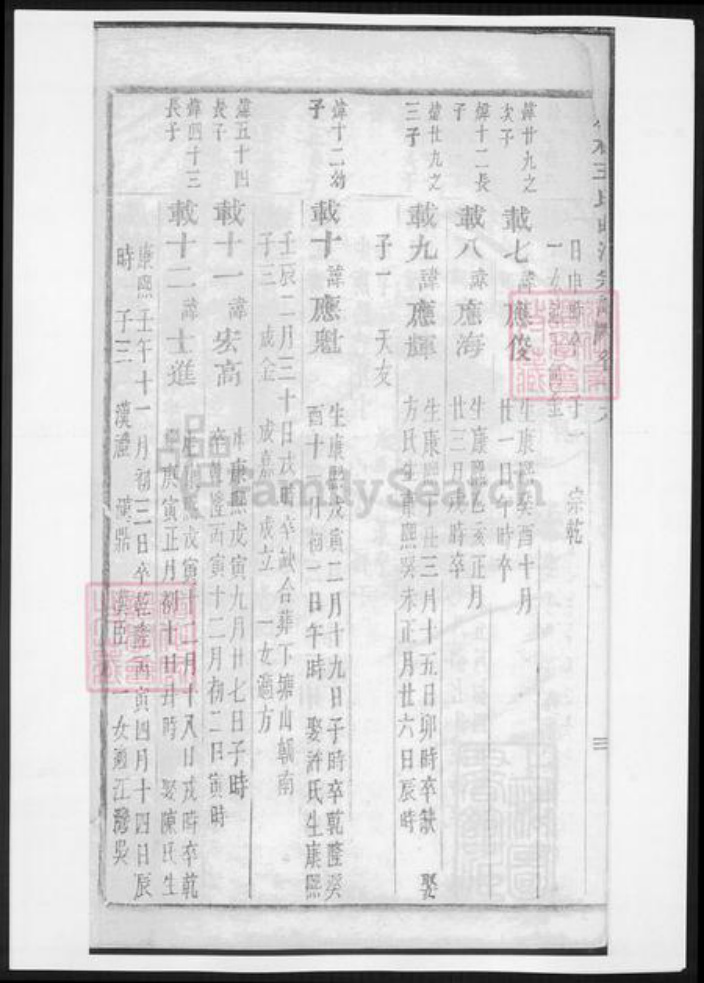 日申時卒 子一 宗乾
一女
煒廿九之
次子
載七 諱應俊
生康熙癸酉十月
廿一日午時卒
煒十二長
子
載八 諱應海
生康熙乙亥正月
廿三月戌時卒
煒廿九之
三子
載九 諱應輝
生康熙丁丑三月十五日卯時卒缺 娶
方氏生康熙癸未正月廿六日辰時
子一 天友
煒十二幼
子
載十 諱應魁
生康熙戊寅二月十九日子時卒乾隆癸
酉十一月初一日午時 娶許氏生康熙
壬辰二月三十日戌時卒缺合葬下塘山朝南
子三 成金 成嘉 成立 一女適方
煒五十四
長子
載十一 諱宏高
生康熙戊寅九月廿七日子時
卒乾隆丙寅十二月初二日寅時
煒四十三
長子
載十二 諱士進
生康熙戊寅十二月十八日戌時卒乾
隆庚寅正月初十日丑時 娶陳氏生
康熙壬午十一月初三日卒乾隆丙寅四月十四日辰
時 子三 漢澧 漢鼎 漢臣 一女適江灣吳
FamilySearch